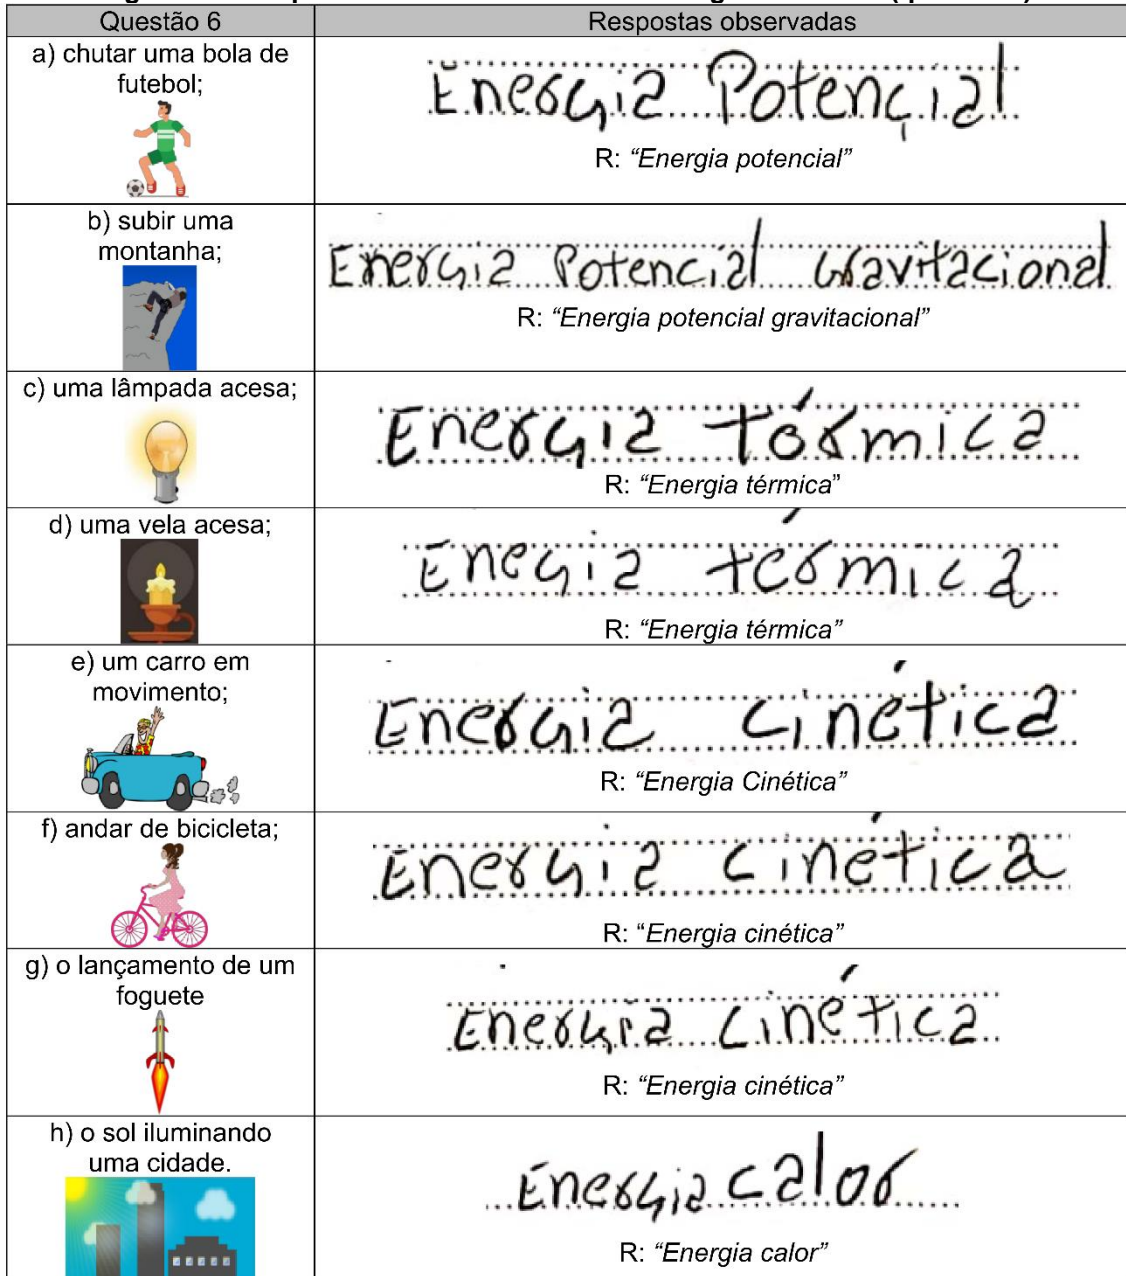 Questão 6
Respostas observadas
a) chutar uma bola de
futebol;
Energia Potencial
R: “Energia potencial”
b) subir uma
montanha;
Energia Potencial Gravitacional
R: “Energia potencial gravitacional”
c) uma lâmpada acesa;
Energia térmica
R: “Energia térmica”
d) uma vela acesa;
Enegia térmica
R: “Energia térmica”
e) um carro em
movimento;
Energia Cinética
R: “Energia Cinética”
f) andar de bicicleta;
Energia Cinética
R: “Energia cinética”
g) o lançamento de um
foguete
Energia Cinética
R: “Energia cinética”
h) o sol iluminando
uma cidade.
Energia calor
R: “Energia calor”